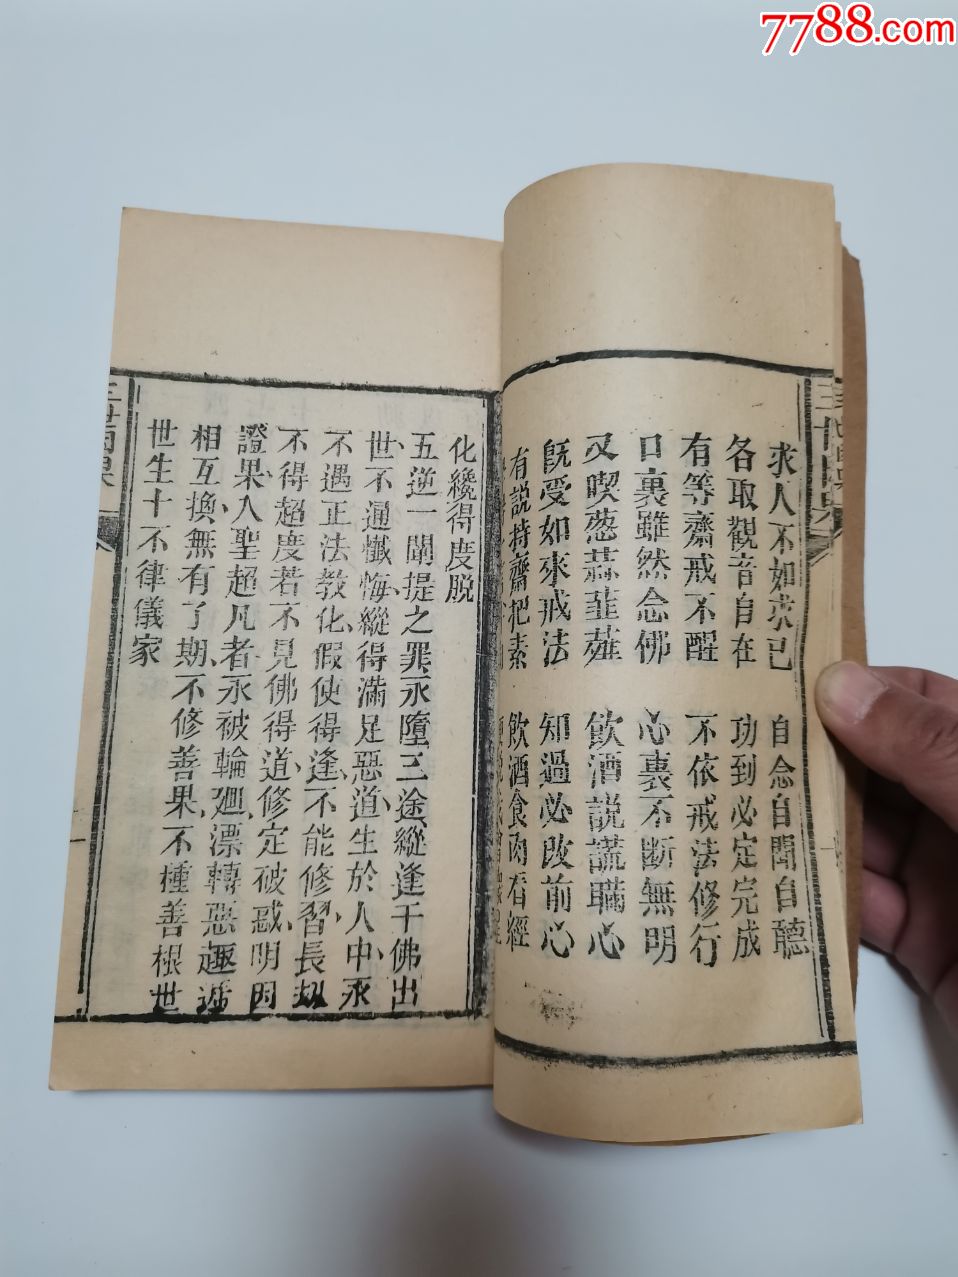 7788.com
求人不如求己　自念自聞自聽
各取觀音自在　功到必定完成
有等齋戒不醒　不依戒法修行
口裏雖然念佛　心裏不斷無明
又喫葱蒜韮薤　飲酒說謊瞞心
旣受如來戒法　知過必改前心
有説持齋把素　飲酒食肉看經
化纔得度脱
五逆一闡提之罪永墮三途縱逢千佛出
世不通懺悔縱得滿足惡道生於人中永
不遇正法教化假使得逢不能修習長劫
不得超度若不見佛得道修定破惑明因
證果入聖超凡者永被輪廻漂轉惡趣遞
相互換無有了期不修善果不種善根世
世生十不律儀家
三世因果